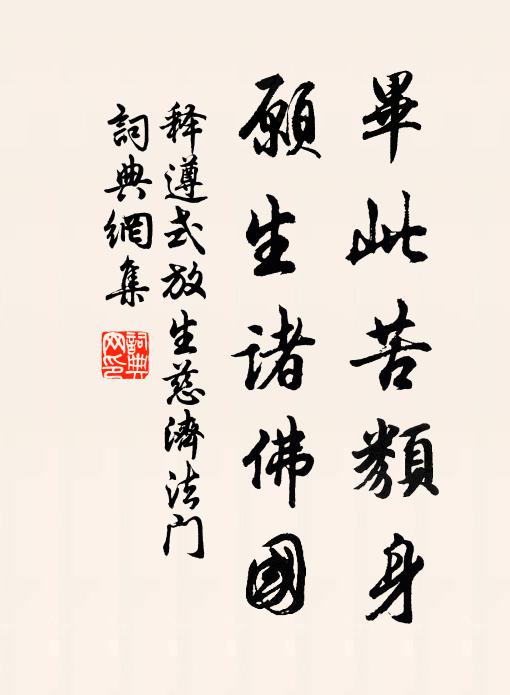 畢此苦類身
願生諸佛國
释遵式放生慈濟法门
詞典網集
詞典
网印